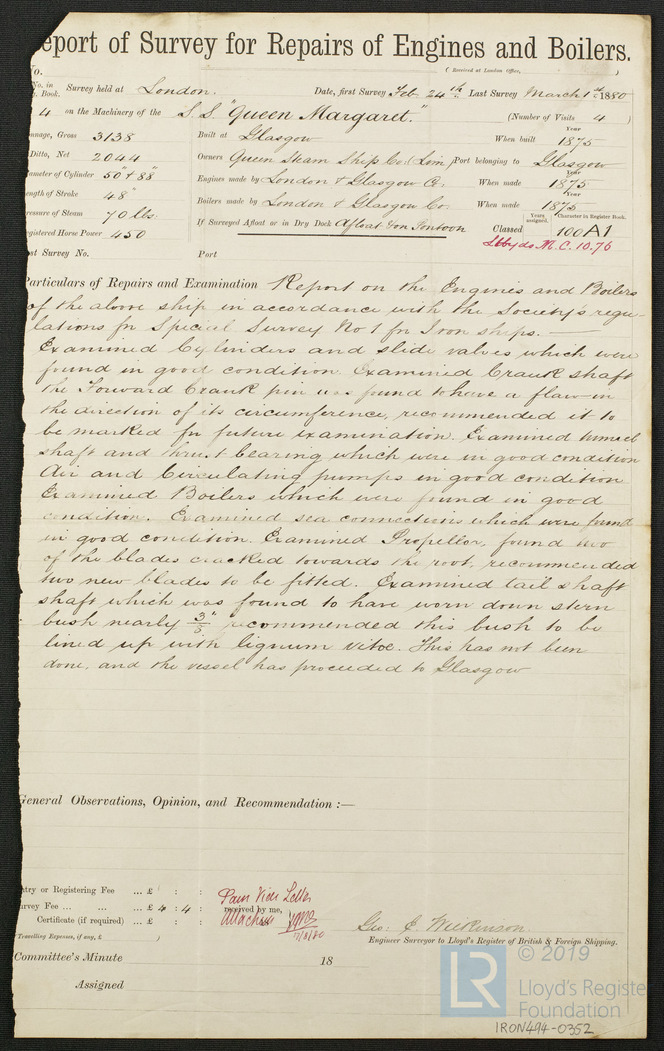 eport of Survey for Repairs of Engines and Boilers.
( Received at London Office, )
o.
No. in
Book. Survey held at London. Date, first Survey Feb 24th Last Survey March 1st 1880
4 on the Machinery of the S.S. "Queen Margaret." (Number of Visits 4 )
nnage, Gross 3138 Built at Glasgow When built Year 1875
Ditto, Net 2044 Owners Queen Steam Ship Co (Lim) Port belonging to Glasgow
ameter of Cylinder 50 + 88" Engines made by London & Glasgow Co. When made Year 1875
ength of Stroke 48" Boilers made by London & Glasgow Co When made Year 1875
ressure of Steam 70 lbs If Surveyed Afloat or in Dry Dock Afloat & on Pontoon Classed Years assigned. Character in Register Book. 100A1
egistered Horse Power 450 Lloyds M.C. 10.76
st Survey No. Port
articulars of Repairs and Examination Report on the Engines and Boilers
of the above ship in accordance with the Society's regu-
lations for Special Survey No 1 for Iron ships. —
Examined Cylinders and slide valves which were
found in good condition. Examined Crank shaft
the Forward Crank pin was found to have a flaw in
the direction of its circumference, recommended it to
be marked for future examination. Examined tunnel
shaft and thrust bearing which were in good condition
Air and Circulating pumps in good condition
Examined Boilers which were found in good
condition. Examined sea connections which were found
in good condition. Examined Propellor, found two
of the blades cracked towards the root, recommended
two new blades to be fitted. Examined tail shaft
shaft which was found to have worn down stern
bush nearly 3/8" recommended this bush to be
lined up with lignum vitoe. This has not been
done, and the vessel has proceeded to Glasgow
General Observations, Opinion, and Recommendation :—
ntry or Registering Fee ... £ : :
urvey Fee ... ... ... £ 4 : 4 :
Certificate (if required) ... £ : :
Travelling Expenses, if any, £ )
received by me,
12/3/80
Geo: E. Wilkinson.
Engineer Surveyor to Lloyd's Register of British & Foreign Shipping.
Committee's Minute 18
Assigned
© 2019
LR
Lloyd's Registe
Foundation
IRON494-0352